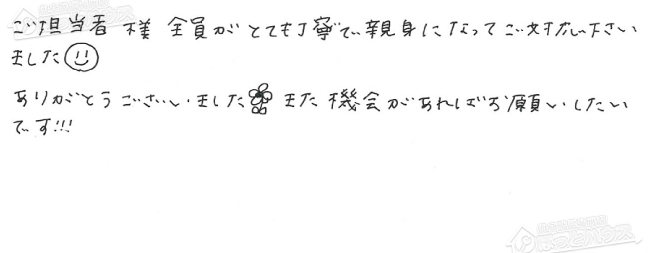 ご担当者様 全員がとても丁寧で、親身になってご対応下さい
ました☺
ありがとうございました また機会があればお願いしたい
です!!!